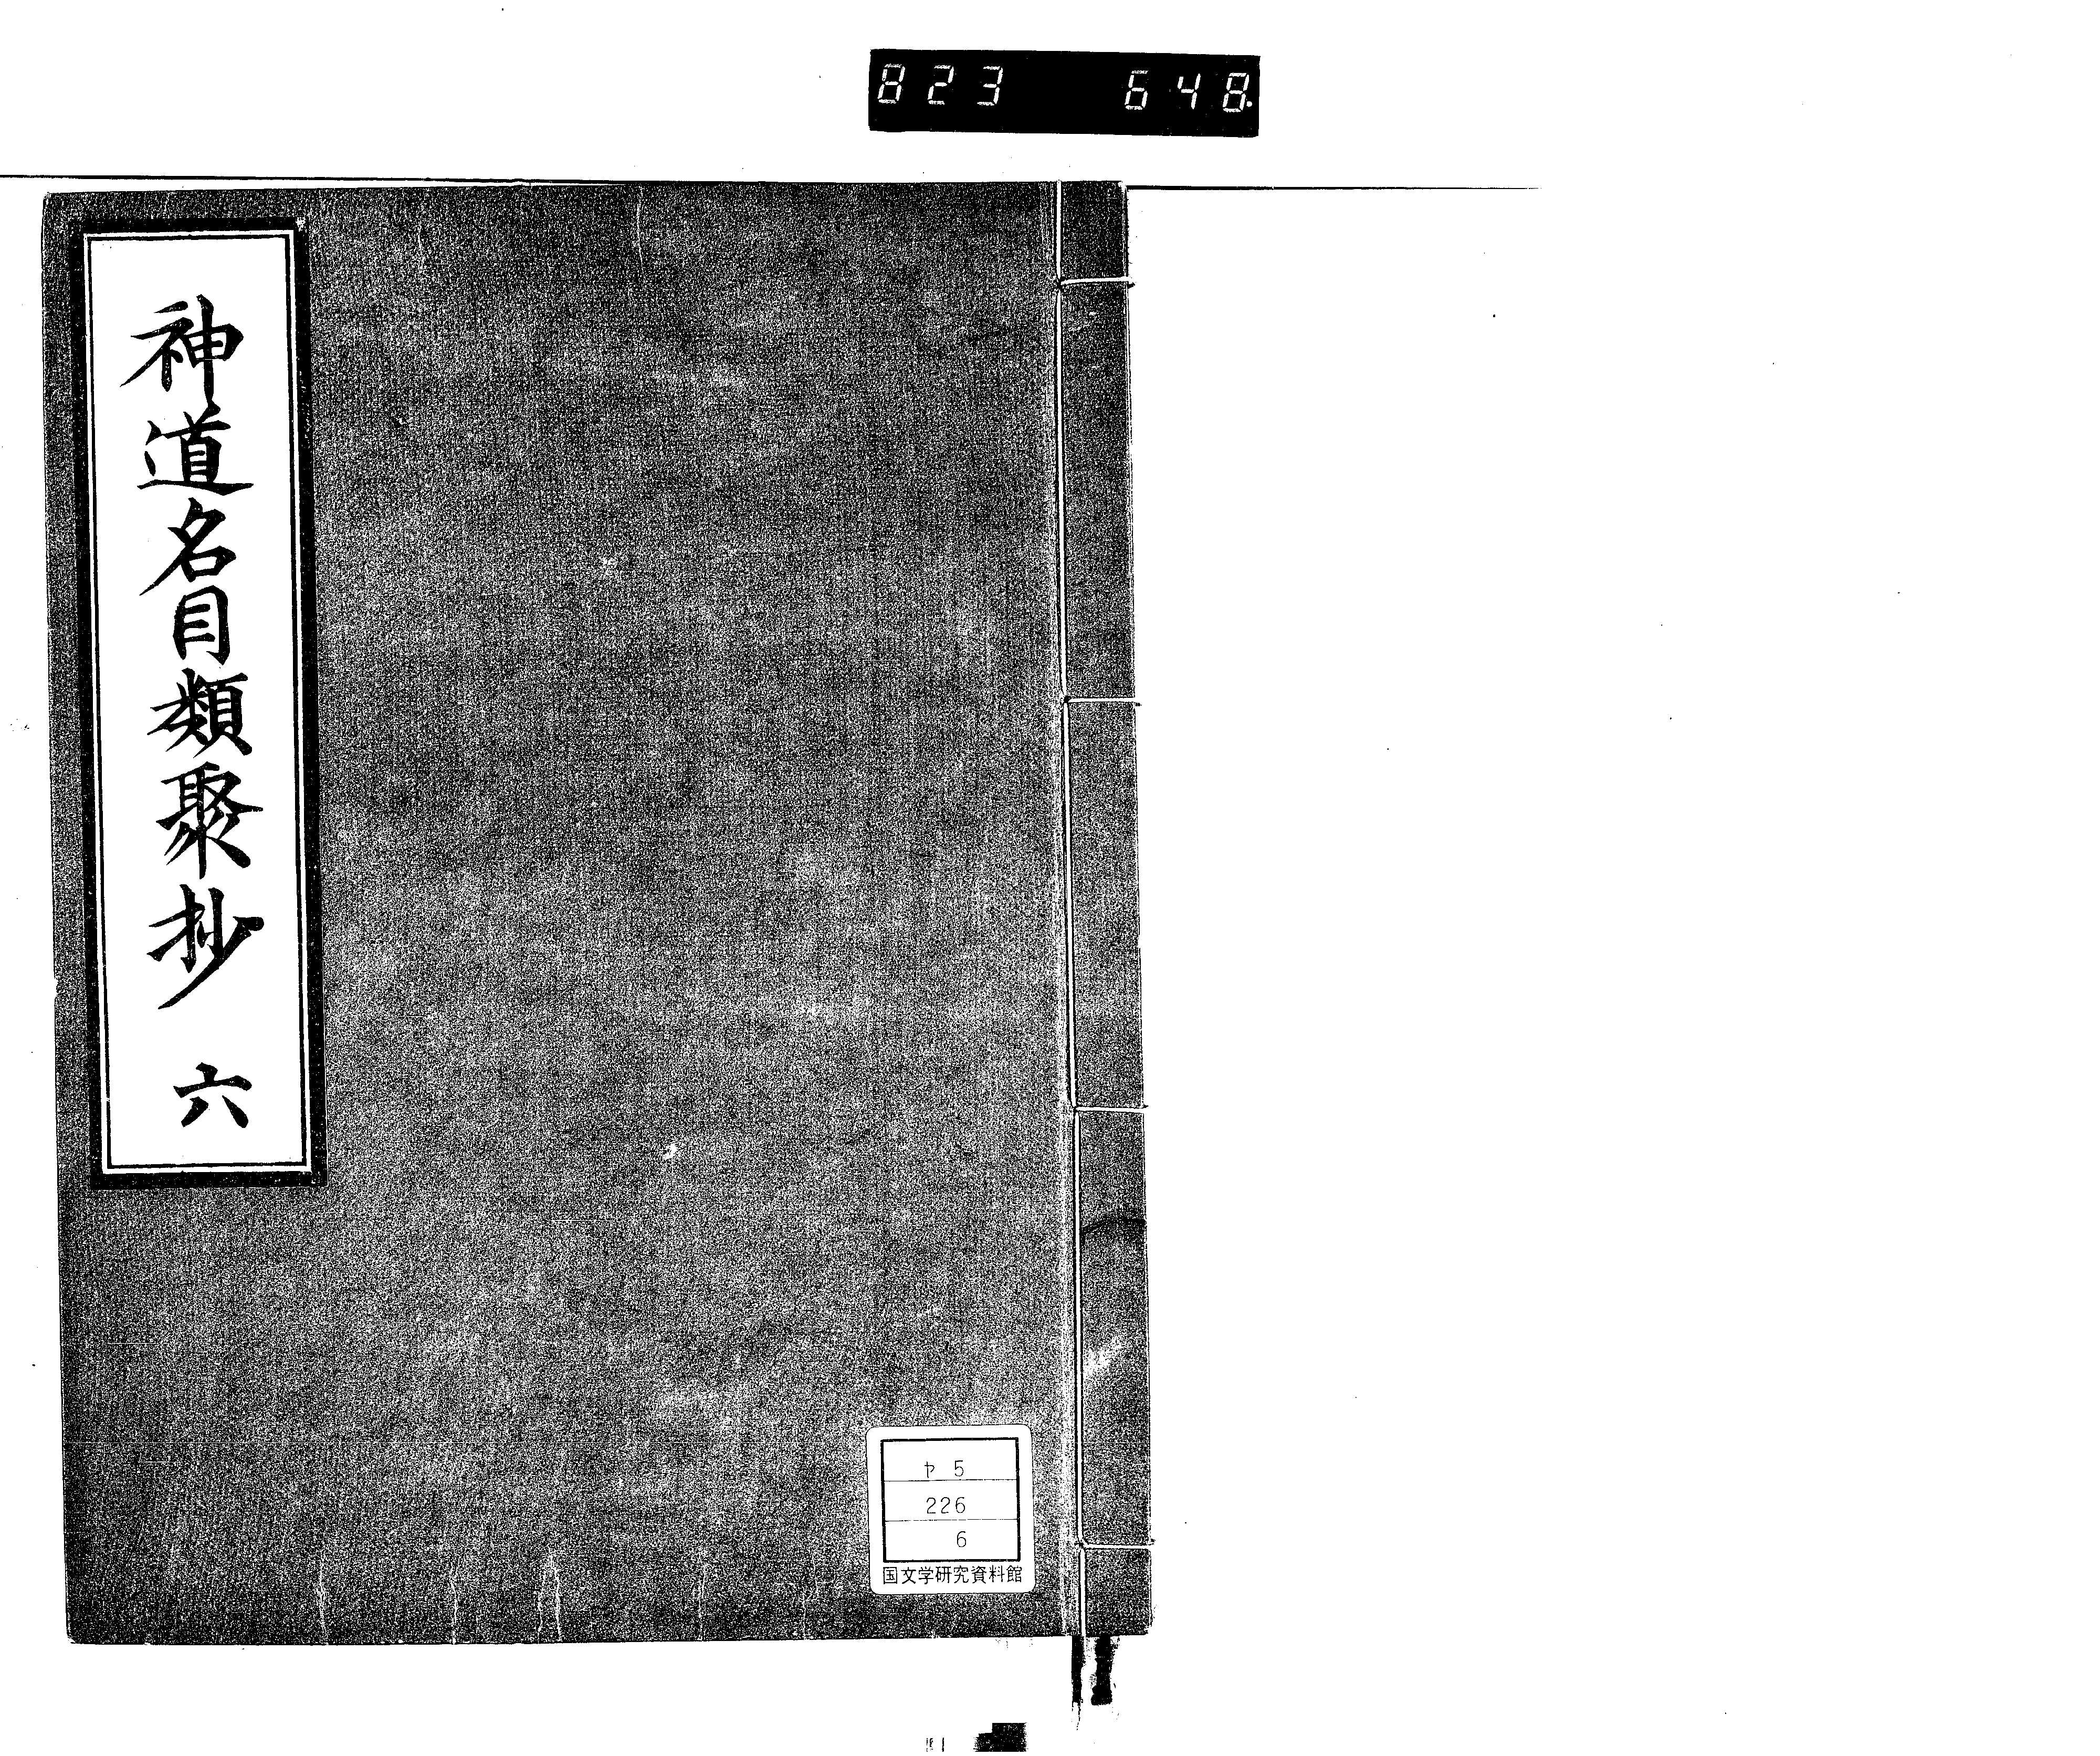 823 648.
神道名目類聚抄 六
ヤ 5
226
6
国文学研究資料館